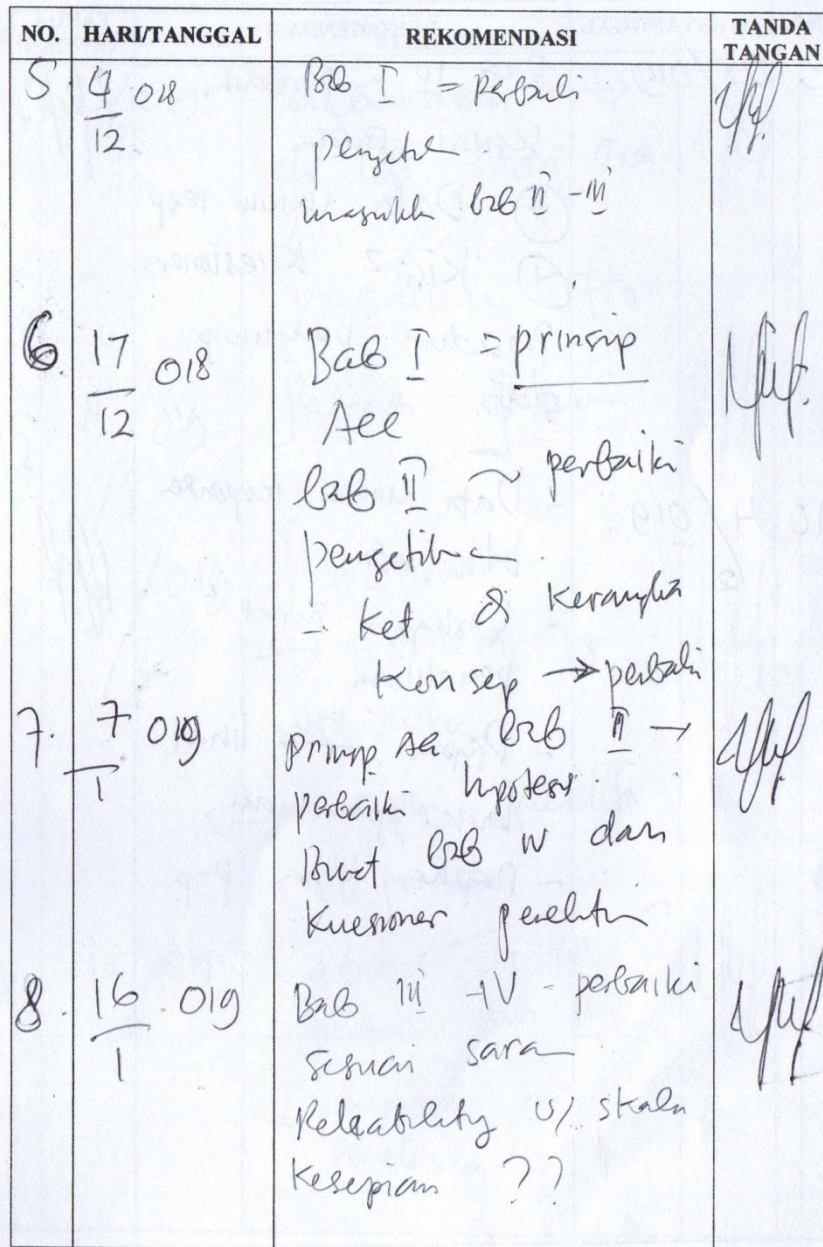 NO. HARI/TANGGAL REKOMENDASI TANDA TANGAN
5 4/12 018 Bab I = perbaiki
pengetika
masukka bab II - III
6. 17/12 018 Bab I = prinsip
Acc
bab II ~ perbaiki
pengetika
- Ket & Kerangka
Konsep → perbaiki
7. 7/1 019 prinsip Acc bab II →
perbaiki hipotesis
Buat bab IV dan
Kuesioner penelitin
8. 16/1 019 Bab III - IV - perbaiki
sesuai sara
Reliability u/ skala
Kesepian ??